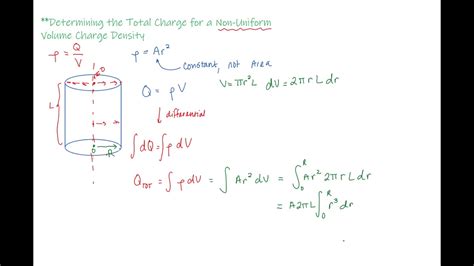 **Determining the Total Charge for a Non-Uniform
Volume Charge Density
ρ = Q/V
ρ = Ar²
constant, not Area
Q = ρV
V = πr²L dV = 2πrLdr
↓ differential
L
R
∫dQ = ∫ρdV
Q_TOT = ∫ρdV = ∫Ar²dV = ∫₀ᴿ Ar² 2πrLdr
= A2πL∫₀ᴿ r³dr